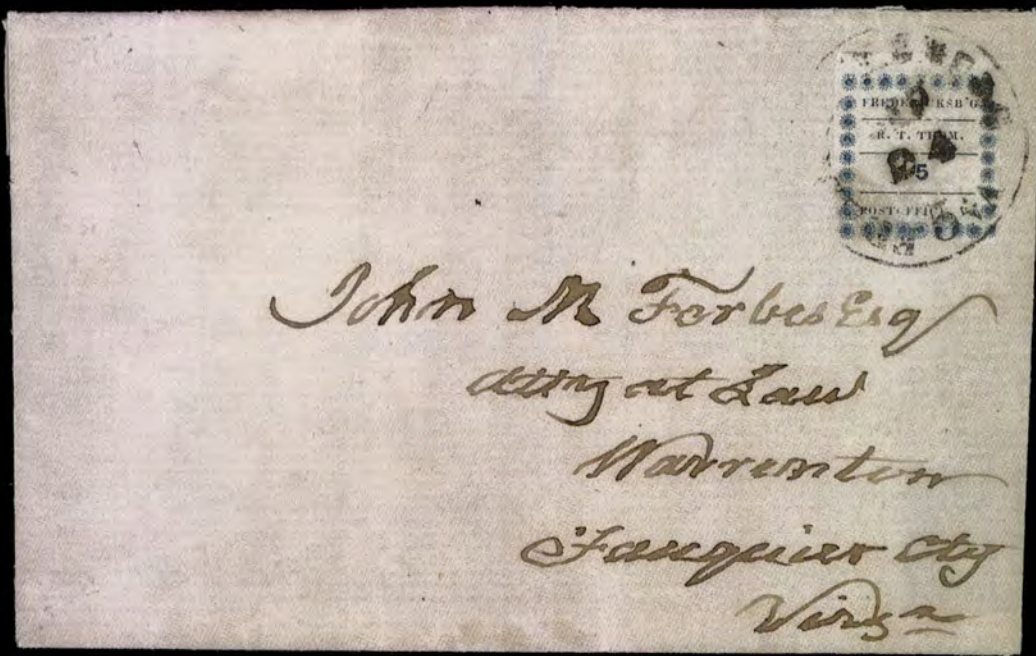 FREDERICKSB'G.
R. T. THOM.
5
POST OFFICE
John M Forbes Esq
Atty at Law
Warrenton
Fauquier Cty
Virg<sup>a</sup>